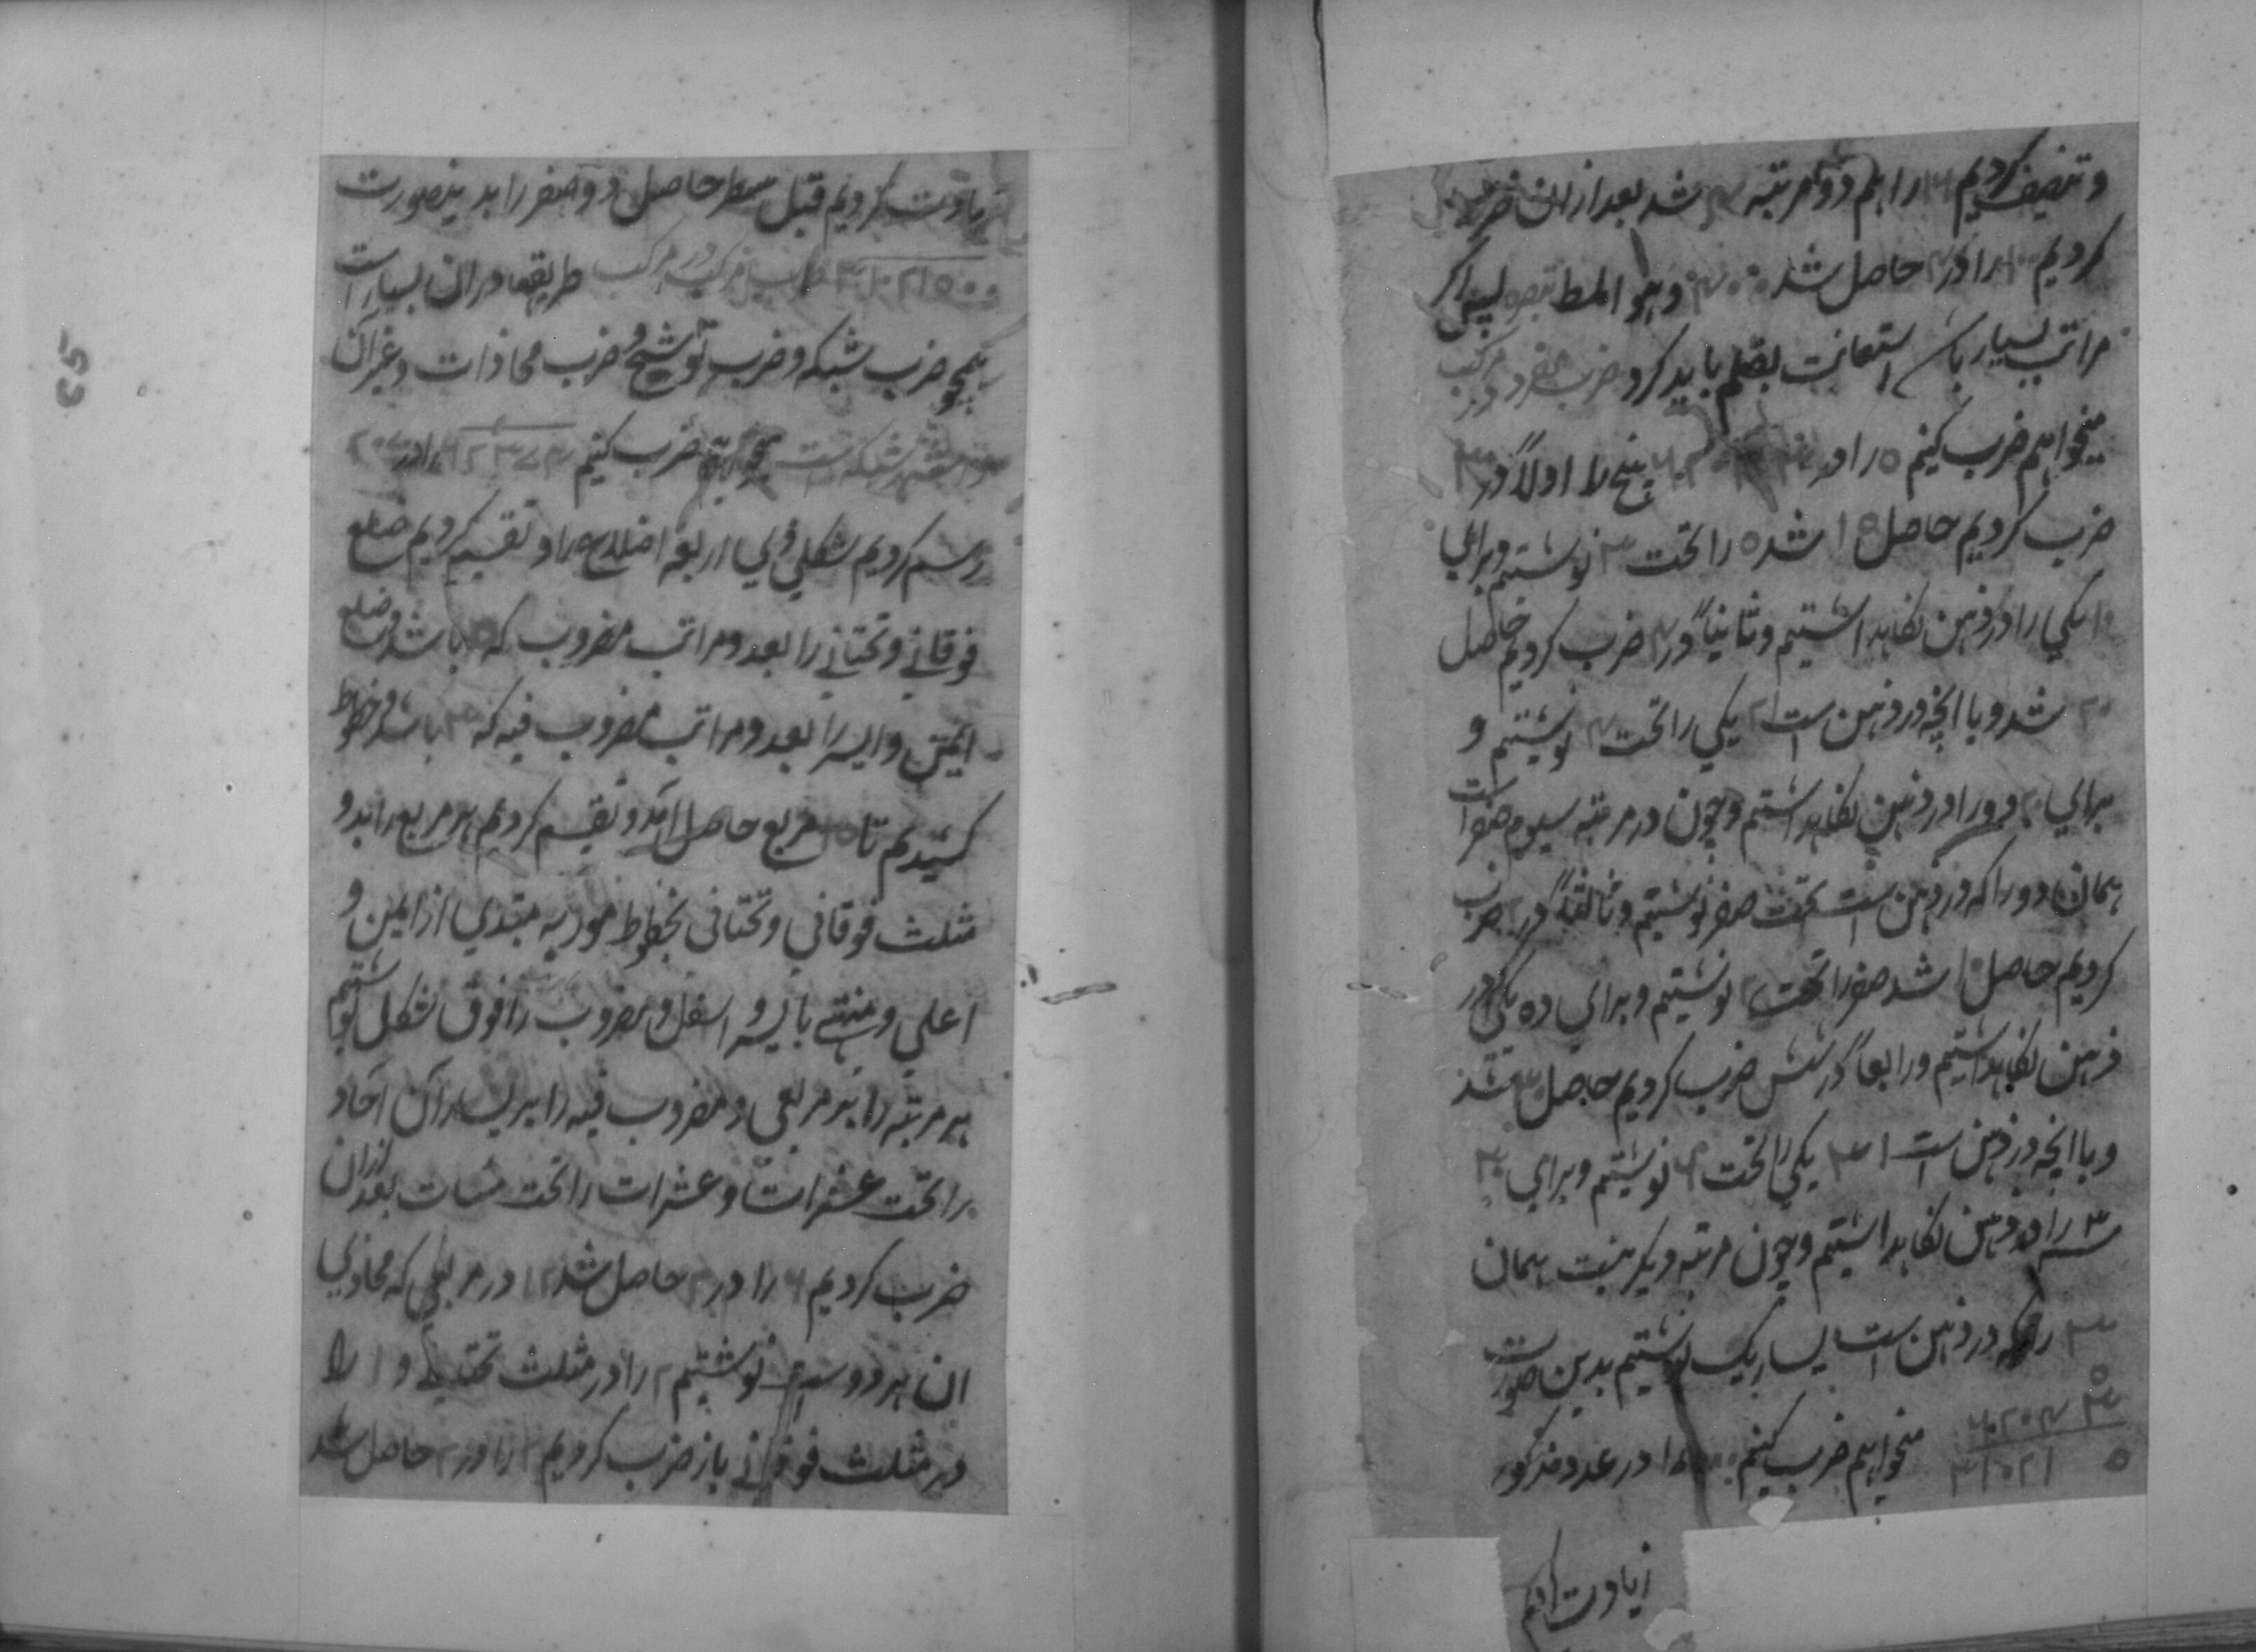 و تنصیف کردیم ۱۶ را هم دو مرتبه ۴ شد بعد از ان ضرب
کردیم ۱۰۰ را در ۴ حاصل شد ۴۰۰ و هو المط تبصره پس اگر
مراتب بسیار باشد استعانت بقلم باید کرد ضرب مفرد در مرکب
میخواهم ضرب کنیم ۵ را در پنج را اولاً در ۳
ضرب کردیم حاصل ۱۵ شد ۵ را تحت ۳ نوشتیم و برای
۱۰ یکی را در ذهن نگاهداشتیم و ثانیاً در ۴ ضرب کردیم حاصل
۲۰ شد و با انچه در ذهن است ۲۱ یکی را تحت ۴ نوشتیم و
برای ۲۰ دو را در ذهن نگاهداشتیم و چون در مرتبه سیوم صفر است
همان دو را که در ذهن است تحت صفر نوشتیم و ثالثاً در ۲ ضرب
کردیم حاصل ۱۰ شد صفر را تحت ۲ نوشتیم و برای ده یکی در
ذهن نگاهداشتیم و رابعاً در شش ضرب کردیم حاصل ۳۰ شد
و با انچه در ذهن است ۳۱ یکی را تحت ۶ نوشتیم و برای ۳۰
۳ را در ذهن نگاهداشتیم و چون مرتبه دیگر نیست همان
۳ را که در ذهن است بیسار یک نوشتیم بدین صورت
۵
۶۲۰۴۳
۳۱۰۲۱۵
میخواهم ضرب کنیم ۵۰۰ را در عدد مذکور
زیادت کردیم
زیادت کردیم قبل سطر حاصل دو صفر را بدینصورت
۳۱۰۲۱۵۰۰ ضرب مرکب در مرکب طریقها دران بسیار است
همچو ضرب شبکه و ضرب توشیح و ضرب محاذات و غیر آن
و اشهر شبکه است میخواهیم ضرب کنیم ۶۲۳۷۴ را در ۲۰۷
رسم کردیم شکلی ذی اربعه اضلاع را و تقسیم کردیم ضلع
فوقانی و تحتانی را بعدد مراتب مضروب که ۵ باشد و ضلع
ایمن و ایسر را بعدد مراتب مضروب فیه که ۳ باشد و خطوط
کشیدیم تا ۱۵ مربع حاصل آمد و تقسیم کردیم هر مربع را بدو
مثلث فوقانی و تحتانی بخطوط موربه مبتدی از ایمن و
اعلی و منتهی بایسر و اسفل و مضروب را فوق شکل نوشتیم
هر مرتبه را بر مربعی و مضروب فیه را بر یسار آن آحاد
را تحت عشرات و عشرات را تحت مئات بعد ازان
ضرب کردیم ۶ را در ۲ حاصل شد ۱۲ در مربعی که محاذی
ان هر دو ست نوشتیم ۲ را در مثلث تحتانی و ۱ را
در مثلث فوقانی باز ضرب کردیم ۲ را در ۲ حاصل شد